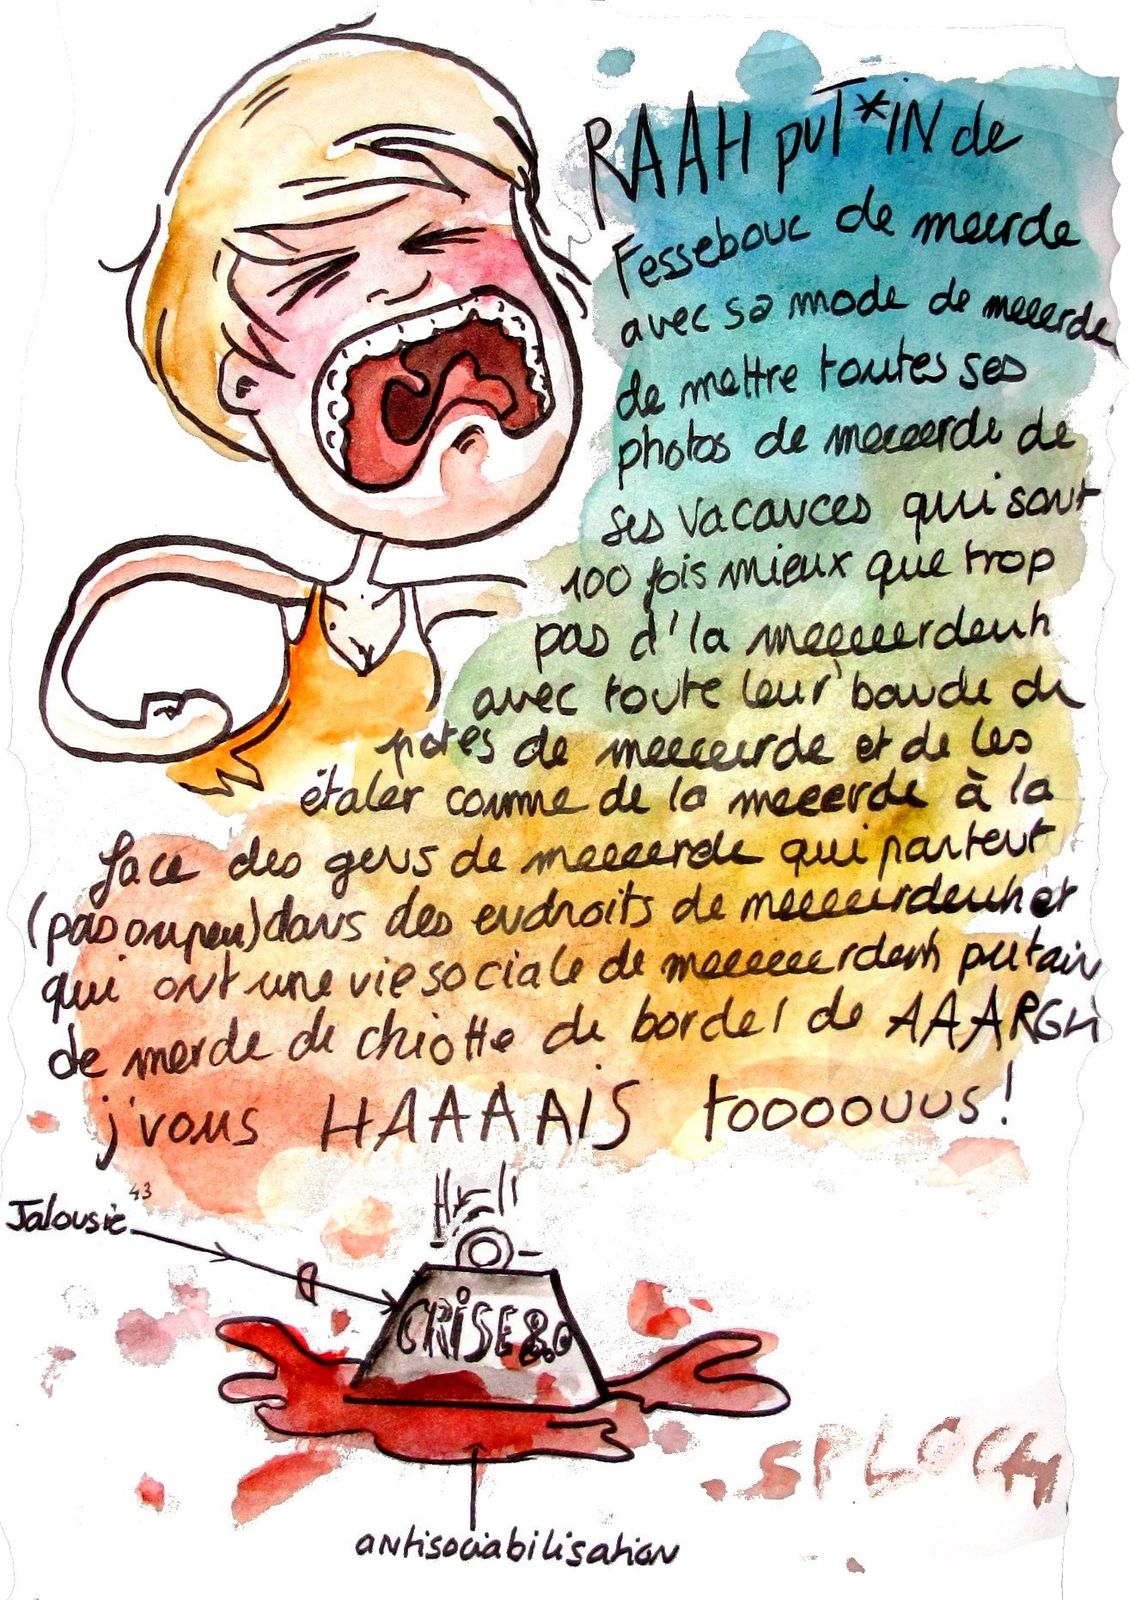 RAAH puT*IN de
Fessebouc de meerde
avec sa mode de meeerde
de mettre toutes ses
photos de meeeerde de
ses vacances qui sont
100 fois mieux que trop
pas d'la meeeeerdeuh
avec toute leur bande de
potes de meeeeerde et de les
étaler comme de la meeerde à la
face des gens de meeeerde qui partent
(pas ou peu) dans des endroits de meeeeerdeuh et
qui ont une vie sociale de meeeeeerdeuh putain
de merde de chiotte de bordel de AAARGH
j'vous HAAAAIS toooouus!
Jalousie 43
CRiSE 8.0
SPLOCH
antisociabilisation